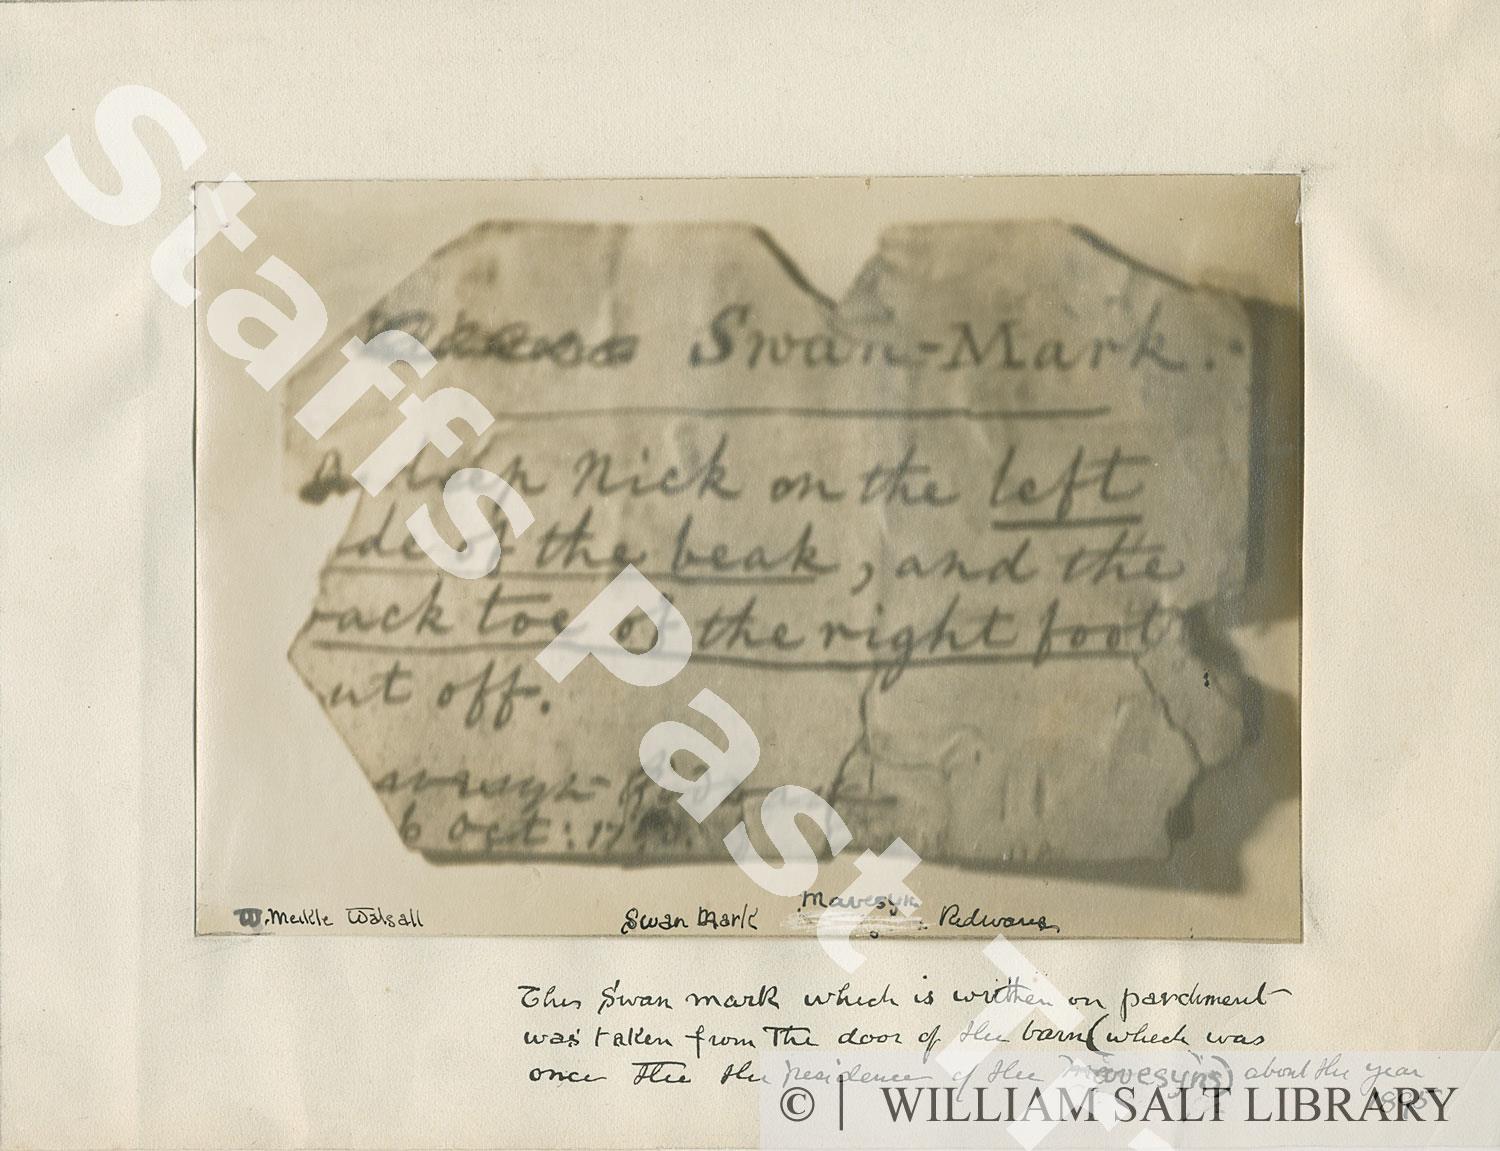 Swan-Mark.
deep Nick on the left
de of the beak, and the
back toe of the right foot
ut off.
avesyn
6 Oct: 17
W. Meikle Walsall
Swan Mark Mavesyn Redware
This Swan mark which is written on parchment
was taken from The door of the barn (which was
once The the residence of the Mavesyns) about the year
1895
© | WILLIAM SALT LIBRARY
Staffs Past Tr